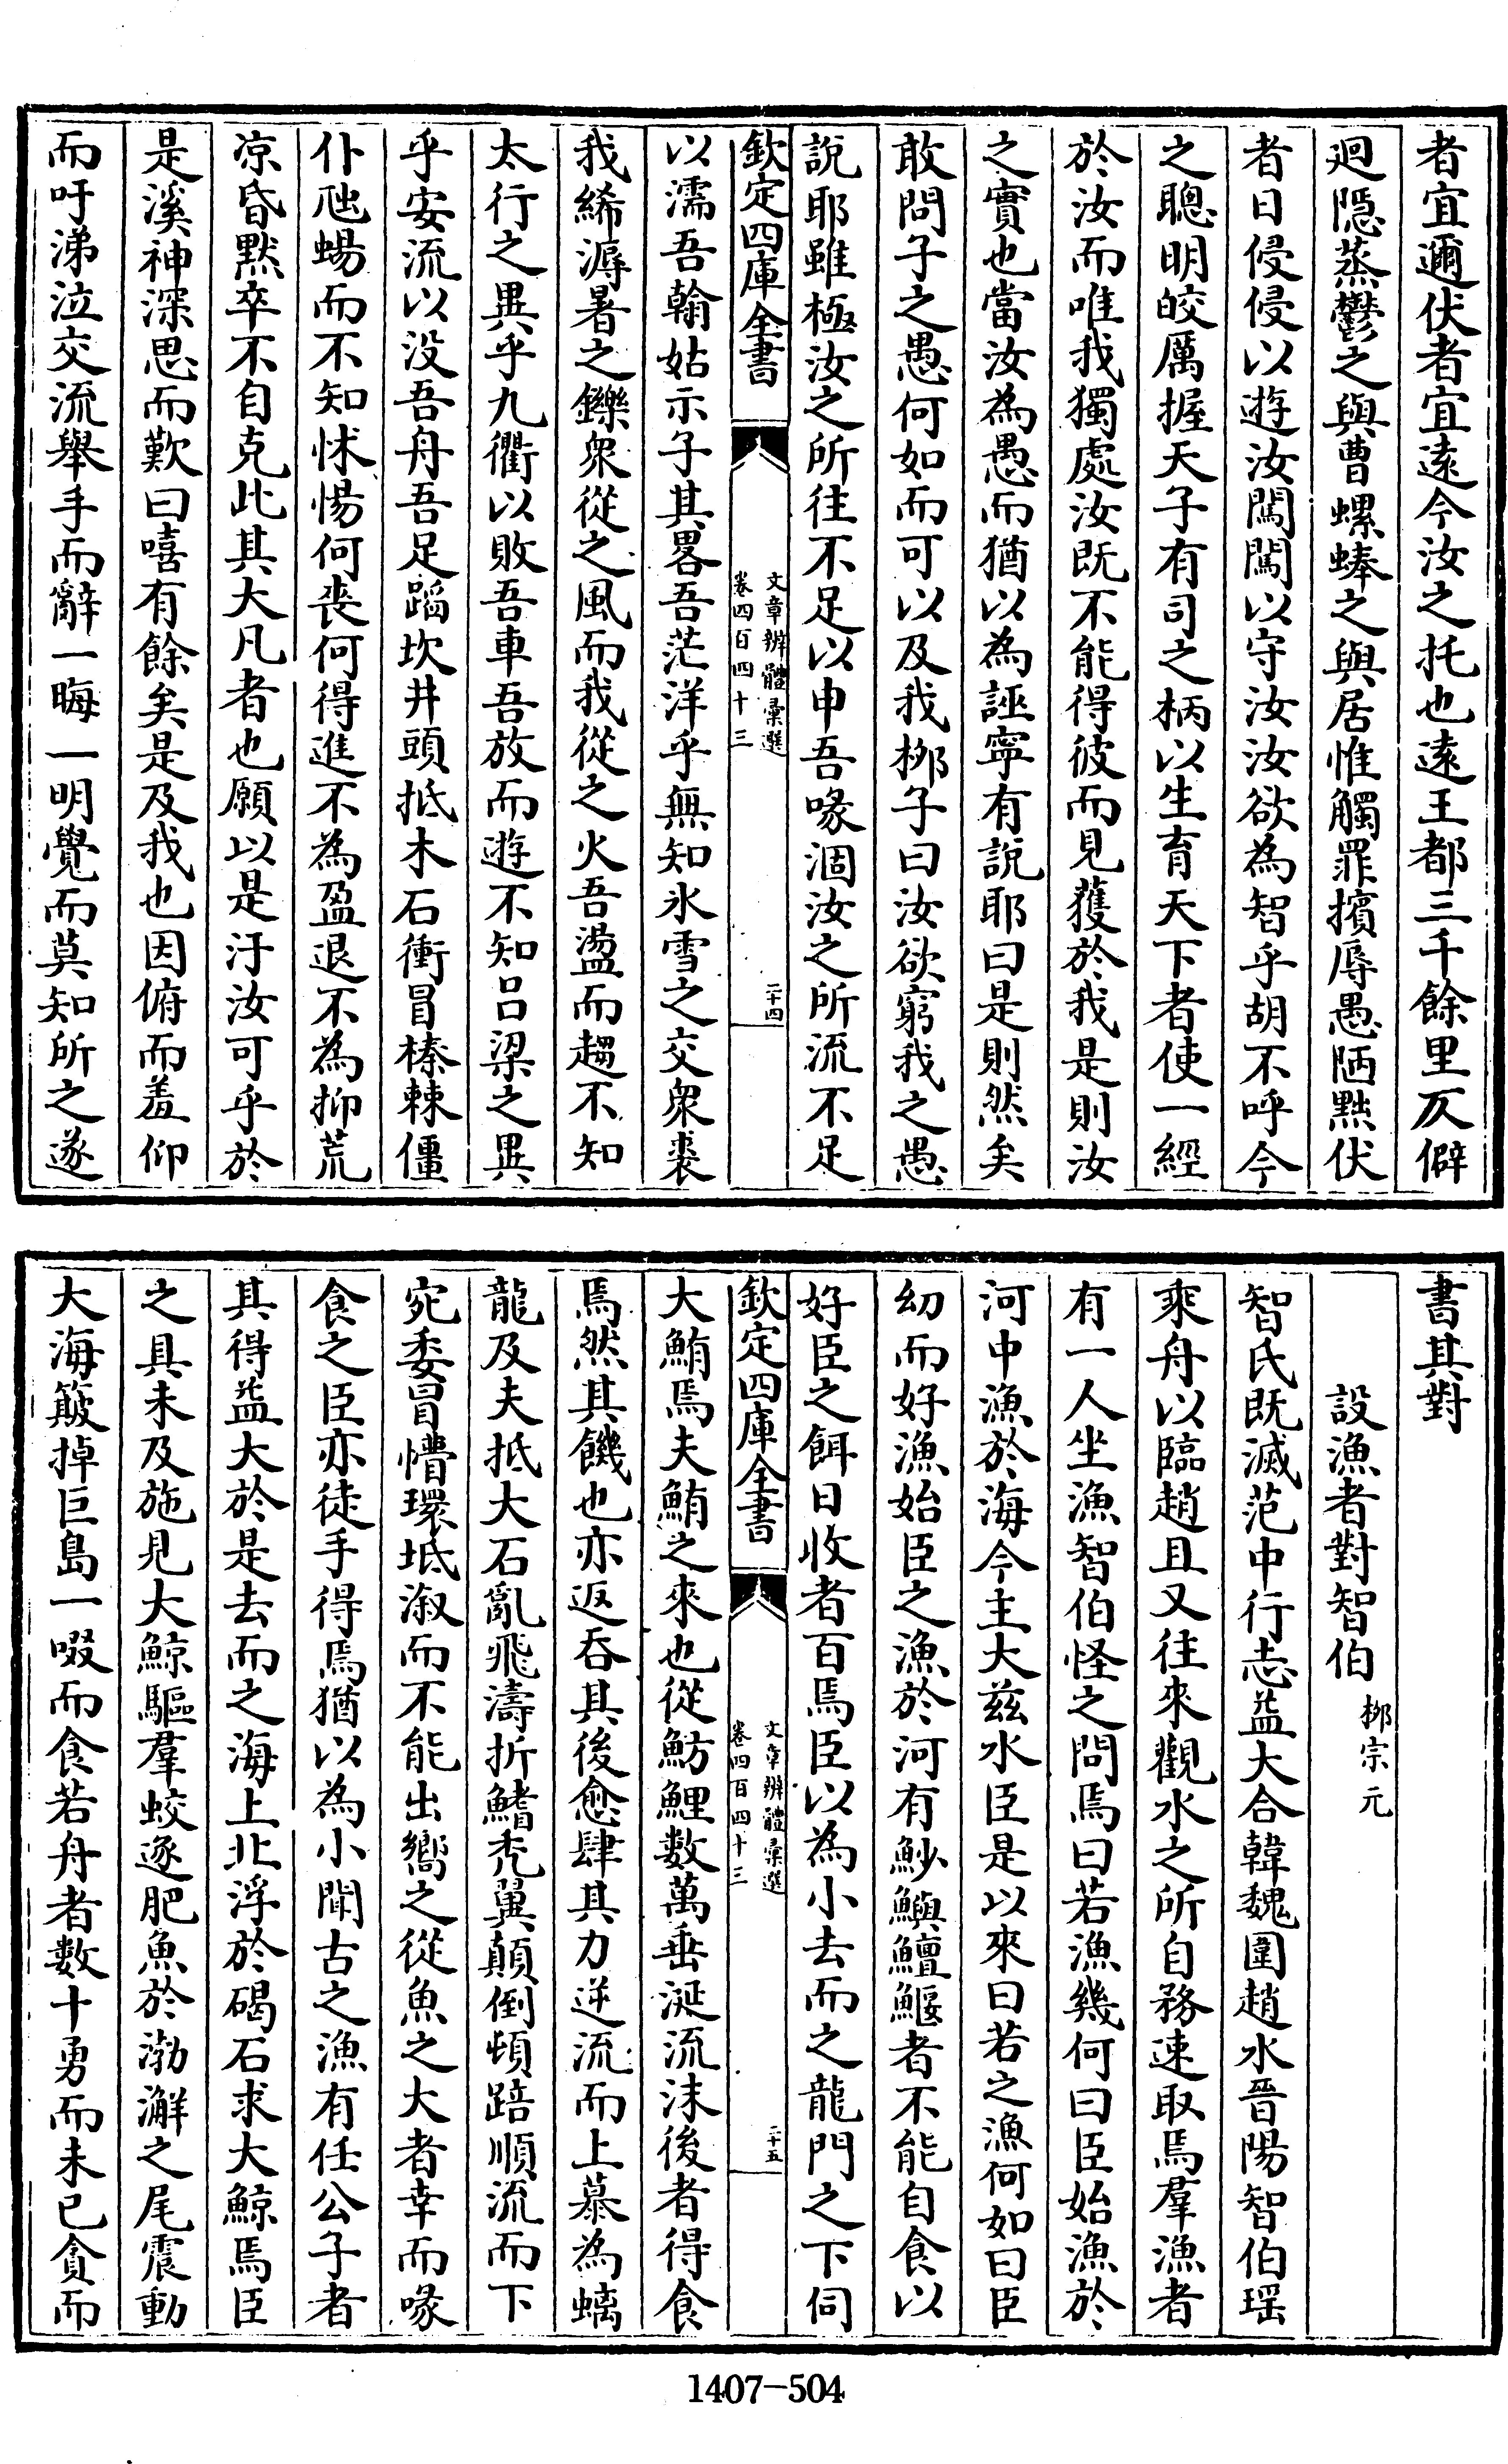 者宜邇伏者宜逺今汝之托也逺王都三千餘里仄僻
迴隱蒸鬱之與曹螺蜯之與居惟觸罪擯辱愚陋黜伏
者日侵侵以遊汝闖闖以守汝汝欲為智乎胡不呼今
之聰明皎厲握天子有司之柄以生育天下者使一經
於汝而唯我獨處汝既不能得彼而見獲於我是則汝
之實也當汝為愚而猶以為誣寧有説耶曰是則然矣
敢問子之愚何如而可以及我栁子曰汝欲窮我之愚
説耶雖極汝之所往不足以申吾喙涸汝之所流不足
欽定四庫全書
文章辨體彙選
卷四百四十三
二十四
以濡吾翰姑示子其畧吾茫洋乎無知氷雪之交衆裘
我絺溽暑之鑠衆從之風而我從之火吾盪而趨不知
太行之異乎九衢以敗吾車吾放而遊不知吕梁之異
乎安流以没吾舟吾足蹈坎井頭抵木石衝冒榛棘僵
仆虺蜴而不知怵惕何喪何得進不為盈退不為抑荒
凉昏黙卒不自克此其大凡者也願以是汙汝可乎於
是溪神深思而歎曰嘻有餘矣是及我也因俯而羞仰
而吁涕泣交流舉手而辭一晦一明覺而莫知所之遂
書其對
設漁者對智伯
栁宗元
智氏既滅范中行志益大合韓魏圍趙水晉陽智伯瑶
乗舟以臨趙且又往來觀水之所自務速取焉羣漁者
有一人坐漁智伯怪之問焉曰若漁幾何曰臣始漁於
河中漁於海今主大兹水臣是以來曰若之漁何如曰臣
幼而好漁始臣之漁於河有魦鱮鱣鰋者不能自食以
好臣之餌日收者百焉臣以為小去而之龍門之下伺
欽定四庫全書
文章辨體彙選
卷四百四十三
二十五
大鮪焉夫鮪之來也從魴鯉數萬垂涎流沫後者得食
焉然其饑也亦返吞其後愈肆其力逆流而上慕為螭
龍及夫抵大石亂飛濤折鰭秃翼顛倒頓踣順流而下
宛委冒懵環坻溆而不能出嚮之從魚之大者幸而啄
食之臣亦徒手得焉猶以為小聞古之漁有任公子者
其得益大於是去而之海上北浮於碣石求大鯨焉臣
之具未及施見大鯨驅羣蛟逐肥魚於渤澥之尾震動
大海簸掉巨島一啜而食若舟者數十勇而未已貪而
1407-504